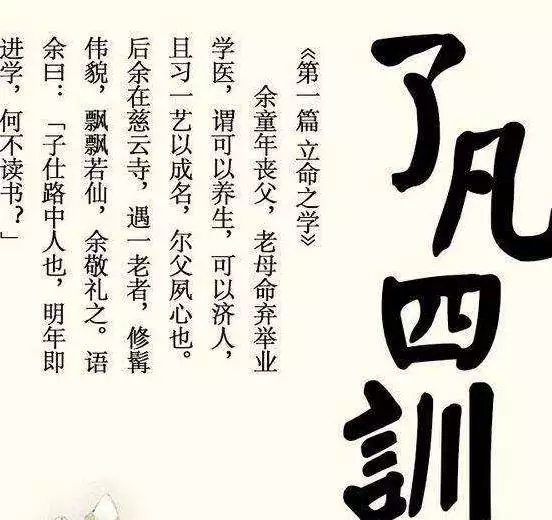 了凡四訓
《第一篇 立命之学》
余童年丧父，老母命弃举业
学医，谓可以养生，可以济人，
且习一艺以成名，尔父夙心也。
后余在慈云寺，遇一老者，修髯
伟貌，飘飘若仙，余敬礼之。语
余曰：「子仕路中人也，明年即
进学，何不读书？」